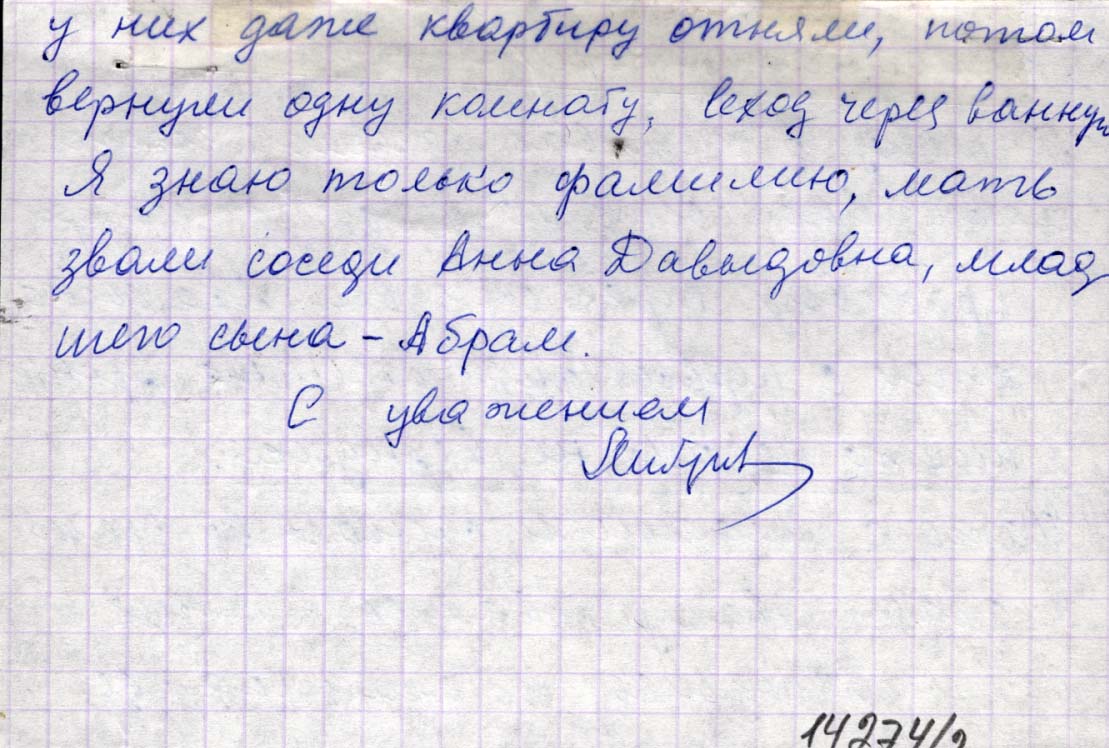 у них даже квартиру отняли, потом
вернули одну комнату, вход через ванную
Я знаю только фамилию, мать
звали соседи Анна Давыдовна, млад
шего сына - Абрам.
С уважением
14274/2